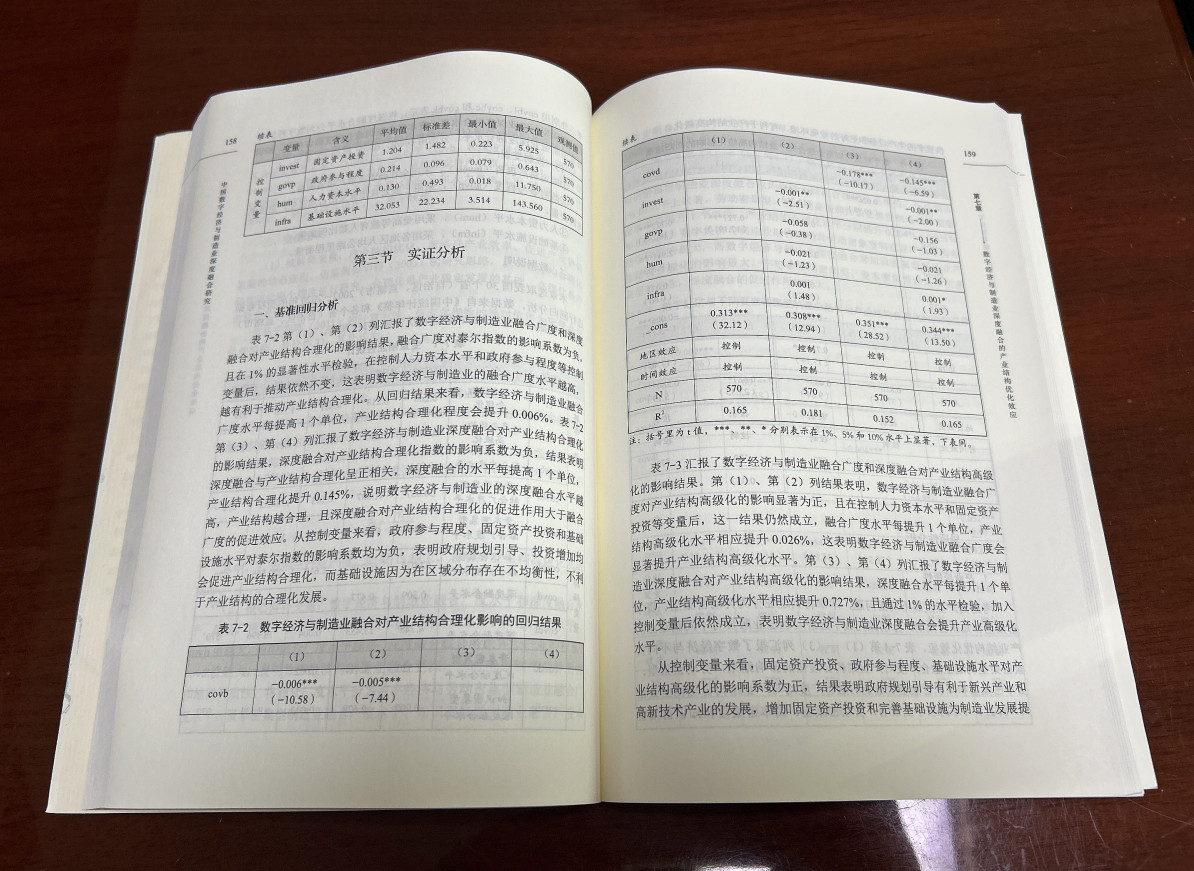 158
中国数字经济与制造业深度融合研究
续表
变量 含义 平均值 标准差 最小值 最大值 观测值
控制变量
invest 固定资产投资 1.204 1.482 0.223 5.925 570
govp 政府参与程度 0.214 0.096 0.079 0.643 570
hum 人力资本水平 0.130 0.493 0.018 11.750 570
infra 基础设施水平 32.053 22.234 3.514 143.560 570
第三节 实证分析
一、基准回归分析
表 7-2 第（1）、第（2）列汇报了数字经济与制造业融合广度和深度
融合对产业结构合理化的影响结果，融合广度对泰尔指数的影响系数为负，
且在 1% 的显著性水平检验，在控制人力资本水平和政府参与程度等控制
变量后，结果依然不变，这表明数字经济与制造业的融合广度水平越高，
越有利于推动产业结构合理化。从回归结果来看，数字经济与制造业融合
广度水平每提高 1 个单位，产业结构合理化程度会提升 0.006%。表 7-2
第（3）、第（4）列汇报了数字经济与制造业深度融合对产业结构合理化
的影响结果，深度融合对产业结构合理化指数的影响系数为负，结果表明
深度融合与产业结构合理化呈正相关，深度融合的水平每提高 1 个单位，
产业结构合理化提升 0.145%，说明数字经济与制造业的深度融合水平越
高，产业结构越合理，且深度融合对产业结构合理化的促进作用大于融合
广度的促进效应。从控制变量来看，政府参与程度、固定资产投资和基础
设施水平对泰尔指数的影响系数均为负，表明政府规划引导、投资增加均
会促进产业结构合理化，而基础设施因为在区域分布存在不均衡性，不利
于产业结构的合理化发展。
表 7-2 数字经济与制造业融合对产业结构合理化影响的回归结果
（1） （2） （3） （4）
covb −0.006*** −0.005***
（−10.58） （−7.44）
159
第七章 数字经济与制造业深度融合的产业结构优化效应
续表
（1） （2） （3） （4）
covd −0.178*** −0.145***
（−10.17） （−6.59）
invest −0.001** −0.001**
（−2.51） （−2.00）
govp −0.058 −0.156
（−0.38） （−1.03）
hum −0.021 −0.021
（−1.23） （−1.26）
infra 0.001 0.001*
（1.48） （1.93）
_cons 0.313*** 0.308*** 0.351*** 0.344***
（32.12） （12.94） （28.52） （13.50）
地区效应 控制 控制 控制 控制
时间效应 控制 控制 控制 控制
N 570 570 570 570
R² 0.165 0.181 0.152 0.165
注：括号里为 t 值，***、**、* 分别表示在 1%、5% 和 10% 水平上显著，下表同。
表 7-3 汇报了数字经济与制造业融合广度和深度融合对产业结构高级
化的影响结果。第（1）、第（2）列结果表明，数字经济与制造业融合广
度对产业结构高级化的影响显著为正，且在控制人力资本水平和固定资产
投资等变量后，这一结果仍然成立，融合广度水平每提升 1 个单位，产业
结构高级化水平相应提升 0.026%，这表明数字经济与制造业融合广度会
显著提升产业结构高级化水平。第（3）、第（4）列汇报了数字经济与制
造业深度融合对产业结构高级化的影响结果，深度融合水平每提升 1 个单
位，产业结构高级化水平相应提升 0.727%，且通过 1% 的水平检验，加入
控制变量后依然成立，表明数字经济与制造业深度融合会提升产业高级化
水平。
从控制变量来看，固定资产投资、政府参与程度、基础设施水平对产
业结构高级化的影响系数为正，结果表明政府规划引导有利于新兴产业和
高新技术产业的发展，增加固定资产投资和完善基础设施为制造业发展提